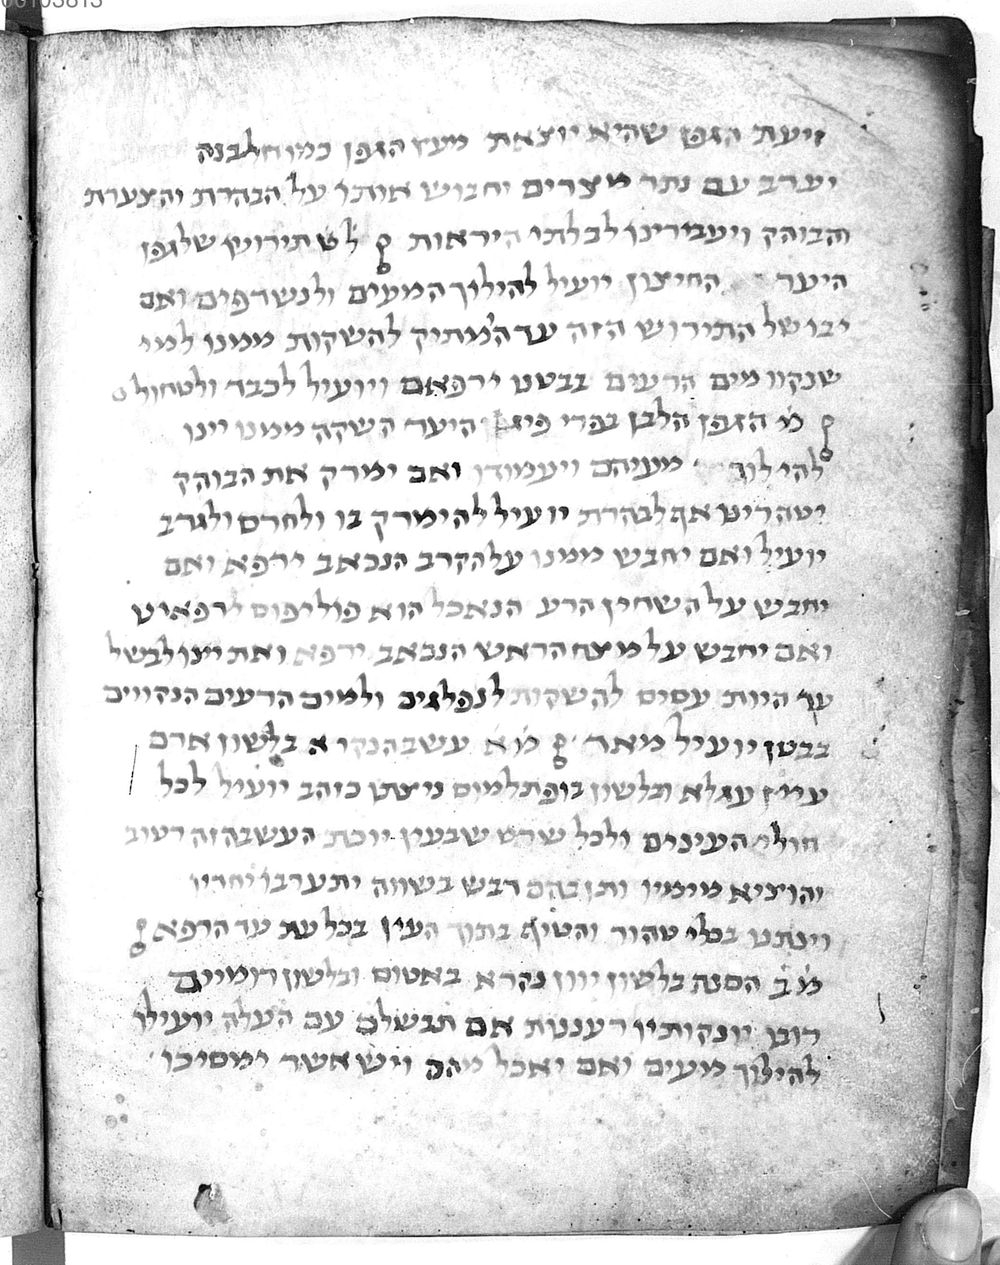 00103813
זיעת הגפן שהיא יוצאת מעץ הגפן כמו חלבנה
יערב עם נתר מצרים יחבוש אותו על הבהרת והצערת
והבוהק ויעבירינו לבלתי היראות פ לט תירוש שלגפן
היער החיצון יועיל להילוך המעים ולנשרפים ואם
יבושל התירוש הזה עד המתיק להשקות ממנו למי
שנקוו מים הרעים בבטנו ירפאם ויועיל לכבד ולטחול
פ מ הגפן הלבן בפרי היער השקה ממנו יינו
להילוך מעיהם ויעמודו ואם ימרק את הבוהק
יטהרינו אף לבהרת יועיל להימרק בו ולחרס ולגרב
יועיל ואם יחבש ממנו על הקרב הנכאב ירפא ואם
יחבש על השחין הרע הנאכל הוא פוליפוס ירפאינו
ואם יחבש על מצח הראש הנכאב ירפא ואת יינו לבשל
עד היות עסיס להשקות לנפלגים ולמים הרעים הנקויים
בבטן יועיל מאד פ מא עשב הנקרא בלשון ארם
עיין עגלא ובלשון בופתלמוס ניצתו כזהב יועיל לכל
חולי העינים ולכל שרט שבעין יוכת העשב הזה רטוב
והוציא מימיו ותן בהם דבש בשווה יתערבו יחדיו
וינתנו בכלי טהור והטיף בתוך העין בכל עת עד הרפא פ
מב הסנה בלשון יוון נקרא באטוס ובלשון רומיים
רובו יונקותיו רעננות אם תבשלם עם העלה יועילו
להילוך מעים ואם יאכל מהם ויש אשר ימסיכו